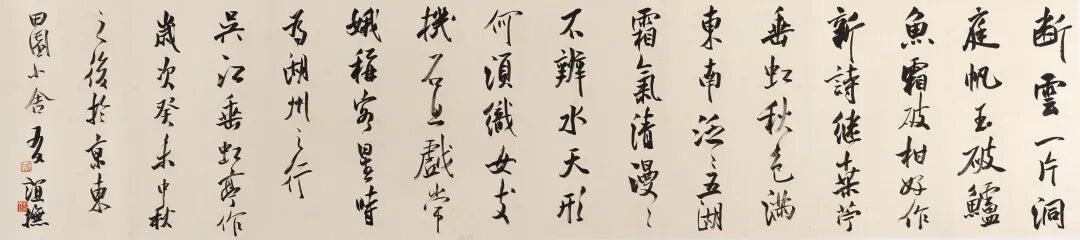 断雲一片洞
庭帆玉破鱸
魚霜破柑好作
新詩継桑苧
垂虹秋色満
東南泛〻五湖
霜氣清漫〻
不辨水天形
何須織女支
機石且戲常
娥稱客星時
為湖州之行
吳江垂虹亭作
歲次癸未中秋
之後於京東
田園小舍 誼撫